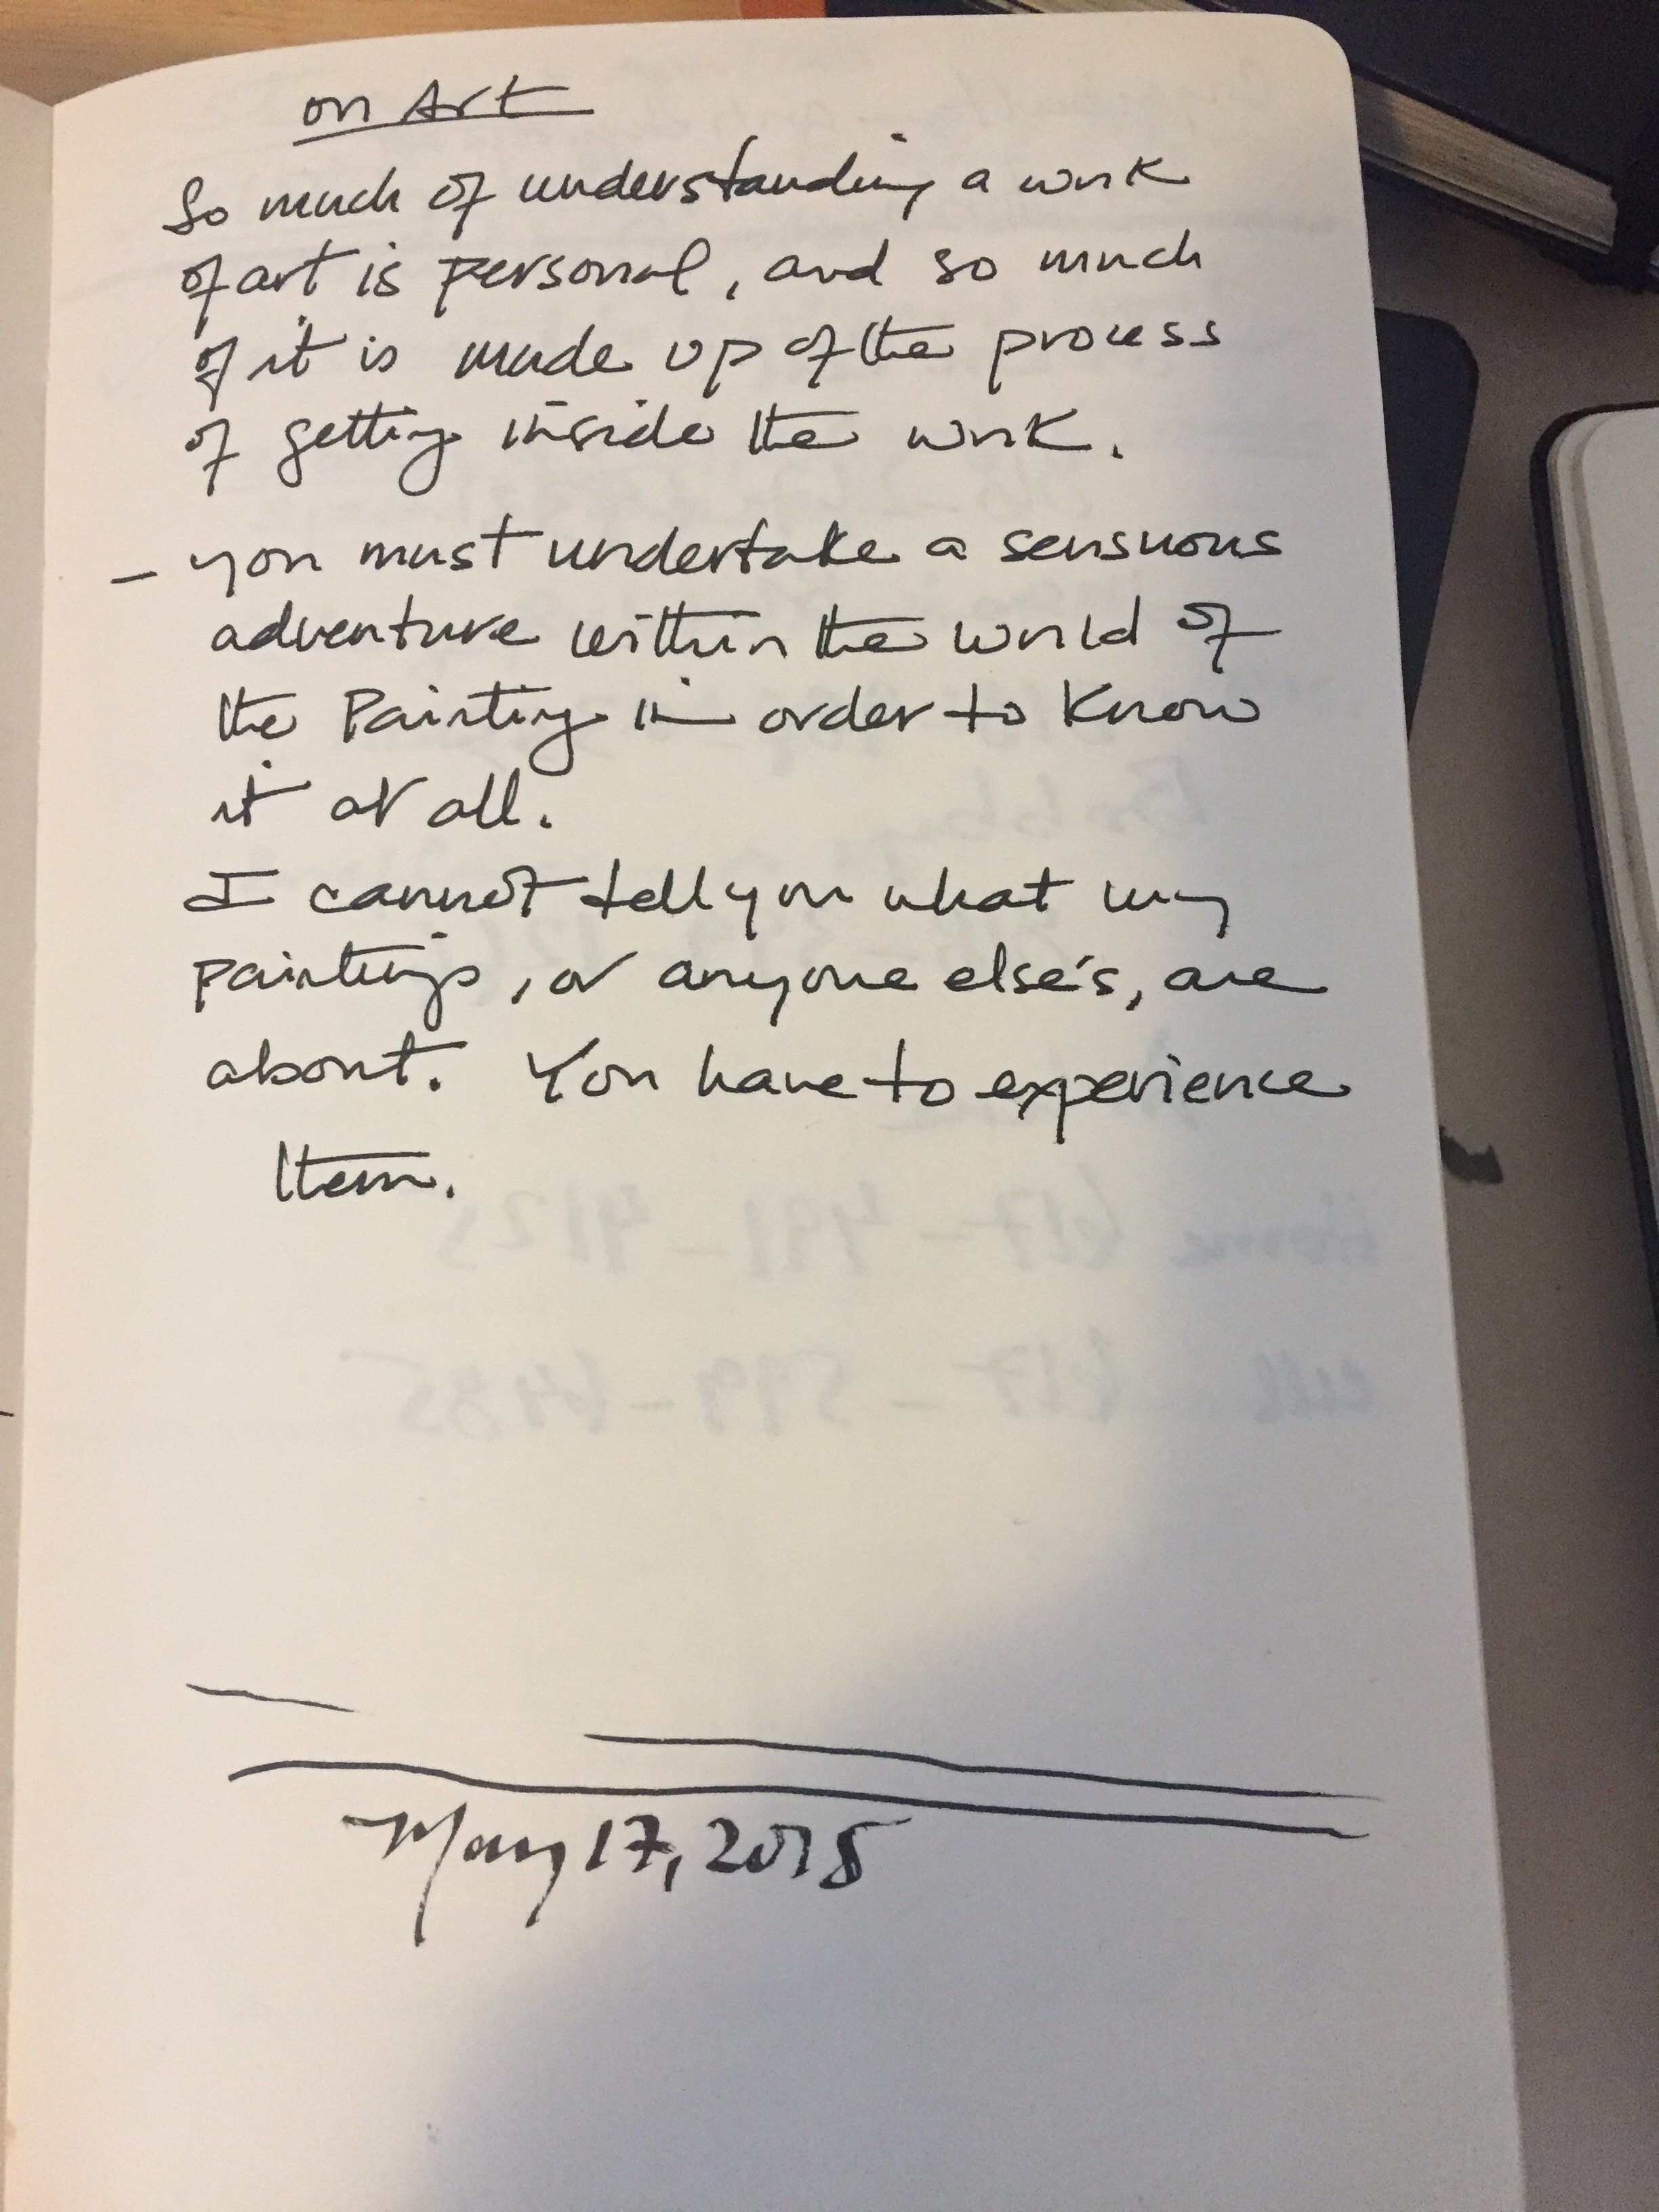 on Art
So much of understanding a work
of art is personal, and so much
of it is made up of the process
of getting inside the work.
- you must undertake a sensuous
adventure within the world of
the Painting in order to know
it at all.
I cannot tell you what my
paintings, or anyone else's, are
about. You have to experience
them.
May 17, 2015